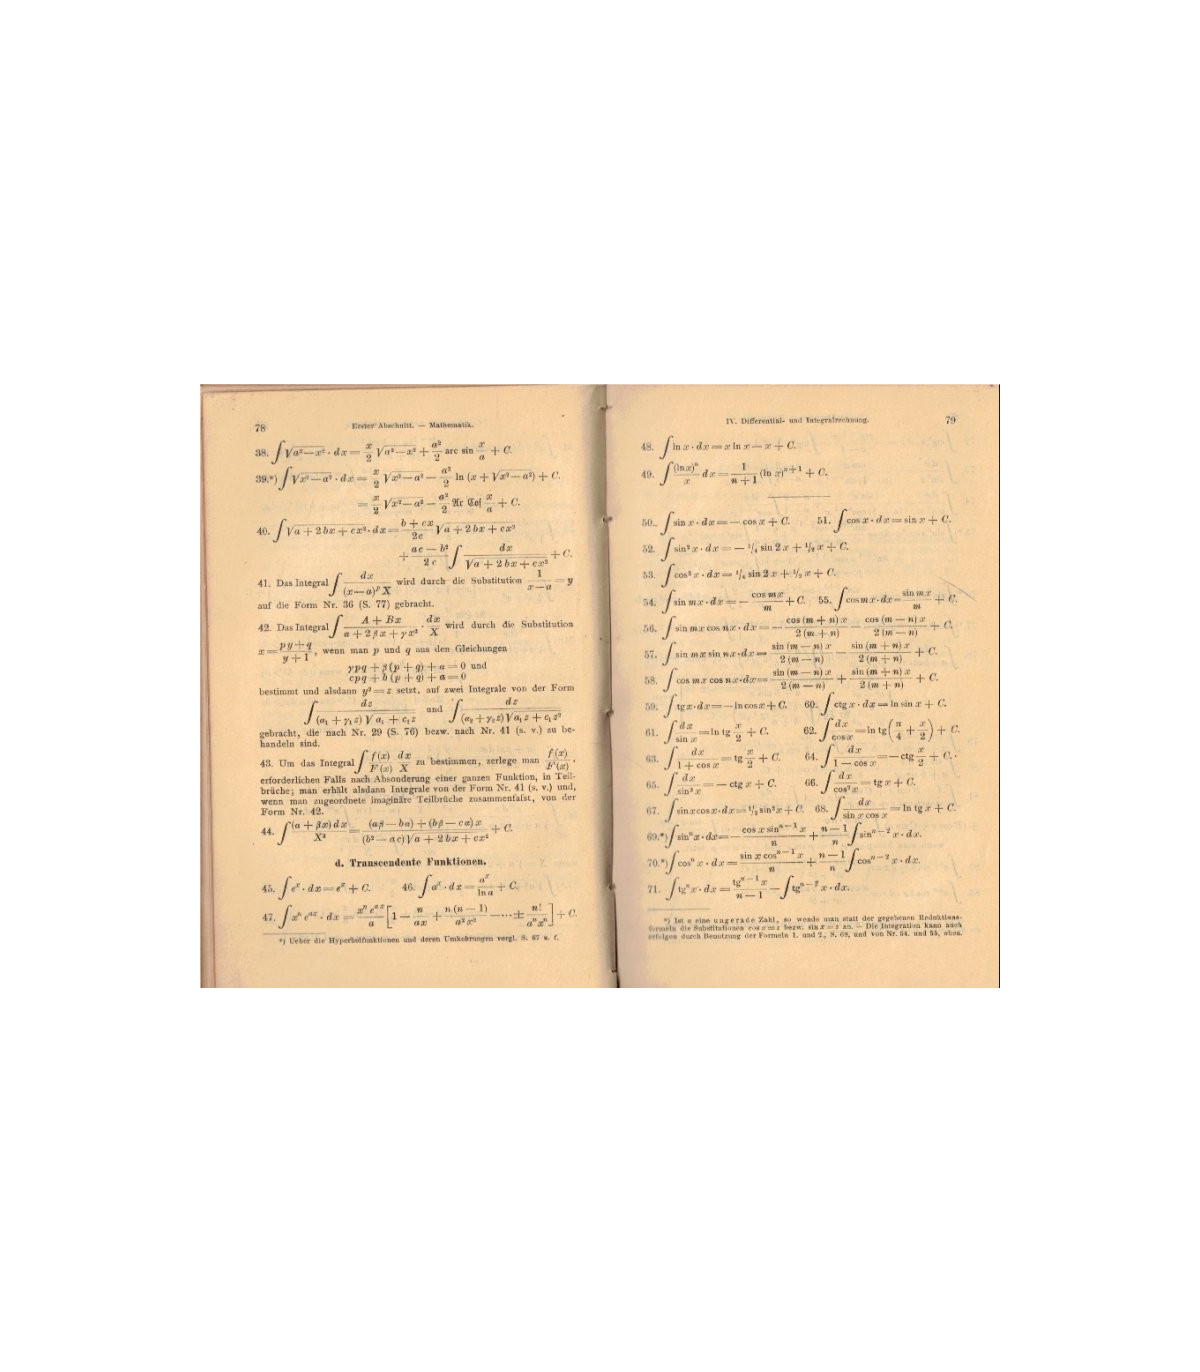 78 Erster Abschnitt. — Mathematik.
38. ∫√(a²—x²) · dx = x/2 √(a²—x²) + a²/2 arc sin x/a + C.
39.*) ∫√(x²—a²) · dx = x/2 √(x²—a²) — a²/2 ln (x + √(x²—a²)) + C.
= x/2 √(x²—a²) — a²/2 Ar Cof x/a + C.
40. ∫√(a + 2bx + cx²) · dx = (b + cx)/2c √(a + 2bx + cx²)
+ (ac — b²)/2c ∫ dx/√(a + 2bx + cx²) + C.
41. Das Integral ∫ dx/((x—a)ᵖ X) wird durch die Substitution 1/(x—a) = y
auf die Form Nr. 36 (S. 77) gebracht.
42. Das Integral ∫ (A + Bx)/(a + 2βx + γx²) · dx/X wird durch die Substitution
x = (py+q)/(y+1), wenn man p und q aus den Gleichungen
γpq + β(p + q) + α = 0 und
cpq + b(p + q) + a = 0
bestimmt und alsdann y² = z setzt, auf zwei Integrale von der Form
∫ dz/((α₁ + γ₁z) √(a₁ + c₁z)) und ∫ dz/((α₂ + γ₂z) √(a₁z + c₁z²))
gebracht, die nach Nr. 29 (S. 76) bezw. nach Nr. 41 (s. v.) zu be-
handeln sind.
43. Um das Integral ∫ f(x)/F(x) dx/X zu bestimmen, zerlege man f(x)/F(x),
erforderlichen Falls nach Absonderung einer ganzen Funktion, in Teil-
brüche; man erhält alsdann Integrale von der Form Nr. 41 (s. v.) und,
wenn man zugeordnete imaginäre Teilbrüche zusammenfafst, von der
Form Nr. 42.
44. ∫ (α + βx) dx/X³ = ((aβ — bα) + (bβ — cα)x)/((b² — ac) √(a + 2bx + cx²)) + C.
d. Transcendente Funktionen.
45. ∫eˣ · dx = eˣ + C. 46. ∫aˣ · dx = aˣ/ln a + C.
47. ∫xⁿ eᵃˣ · dx = xⁿ eᵃˣ/a [1 — n/ax + n(n — 1)/a²x² — ··· ± n!/aⁿxⁿ] + C.
*) Ueber die Hyperbelfunktionen und deren Umkehrungen vergl. S. 67 u. f.
IV. Differential- und Integralrechnung. 79
48. ∫ln x · dx = x ln x — x + C.
49. ∫ (ln x)ⁿ/x dx = 1/(n + 1) (ln x)ⁿ⁺¹ + C.
50. ∫sin x · dx = — cos x + C. 51. ∫cos x · dx = sin x + C.
52. ∫sin² x · dx = — ¹/₄ sin 2x + ¹/₂ x + C.
53. ∫cos² x · dx = ¹/₄ sin 2x + ¹/₂ x + C.
54. ∫sin mx · dx = — cos mx/m + C. 55. ∫cos mx · dx = sin mx/m + C.
56. ∫sin mx cos nx · dx = — cos (m + n) x/2 (m + n) — cos (m — n) x/2 (m — n) + C.
57. ∫sin mx sin nx · dx = sin (m — n) x/2 (m — n) — sin (m + n) x/2 (m + n) + C.
58. ∫cos mx cos nx · dx = sin (m — n) x/2 (m — n) + sin (m + n) x/2 (m + n) + C.
59. ∫tg x · dx = — ln cos x + C. 60. ∫ctg x · dx = ln sin x + C.
61. ∫ dx/sin x = ln tg x/2 + C. 62. ∫ dx/cos x = ln tg (π/4 + x/2) + C.
63. ∫ dx/(1 + cos x) = tg x/2 + C. 64. ∫ dx/(1 — cos x) = — ctg x/2 + C.
65. ∫ dx/sin² x = — ctg x + C. 66. ∫ dx/cos² x = tg x + C.
67. ∫sin x cos x · dx = ¹/₂ sin² x + C. 68. ∫ dx/(sin x cos x) = ln tg x + C.
69.*) ∫sinⁿ x · dx = — cos x sinⁿ⁻¹ x/n + (n — 1)/n ∫sinⁿ⁻² x · dx.
70.*) ∫cosⁿ x · dx = sin x cosⁿ⁻¹ x/n + (n — 1)/n ∫cosⁿ⁻² x · dx.
71. ∫tgⁿ x · dx = tgⁿ⁻¹ x/(n — 1) — ∫tgⁿ⁻² x · dx.
*) Ist n eine ungerade Zahl, so wende man statt der gegebenen Reduktions-
formeln die Substitutionen cos x = z bezw. sin x = z an. — Die Integration kann auch
erfolgen durch Benutzung der Formeln 1. und 2., S. 68, und von Nr. 54. und 55, oben.